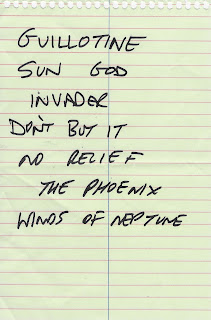 GUILLOTINE
SUN GOD
INVADER
DON'T BUY IT
NO RELIEF
THE PHOENIX
WINDS OF NEPTUNE